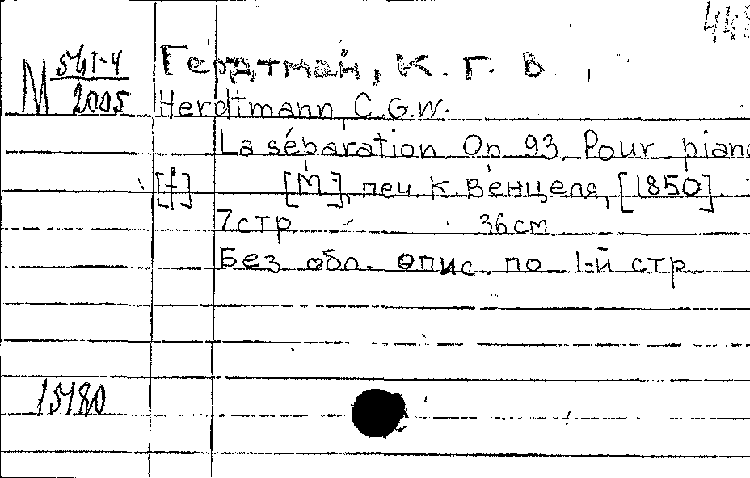 448
М 561-4 Гердтман, К. Г. В.
2005 Herdtmann, C.G.W.
La séparation Op 93. Pour piano
[f] [М], печ. К. Венцеля, [1850].
7 стр 36 см
Без обл. опис. по 1-й стр
15180